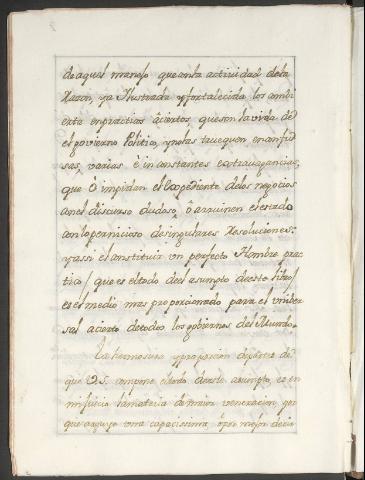 de aquel manejo que anta actividad dela
Razon, ya Ilustrada y fortalecida los ambi
en practicas àciertos, que son la vida de
el govierno Politico, y no las truequen en
sas, varias è inconstantes extravagancias,
que ò impidan el Expediente delos negocios
en el discurso dudoso, ò arruinen el estado
con lo pernicioso de singulares Resoluciones:
y assi el instituir un perfecto Hombre prac
tico / que es el todo del asumpto de este libro /
es el medio mas proporcionado para el univer
sal acierto de todos los goviernos del Mundo.
La hermosura y proporcion de partes de
que V.S. compone el todo de este asumpto, es en
mi juicio la materia de maior veneracion, por
que arguye una capacissima, ò por mejor decir